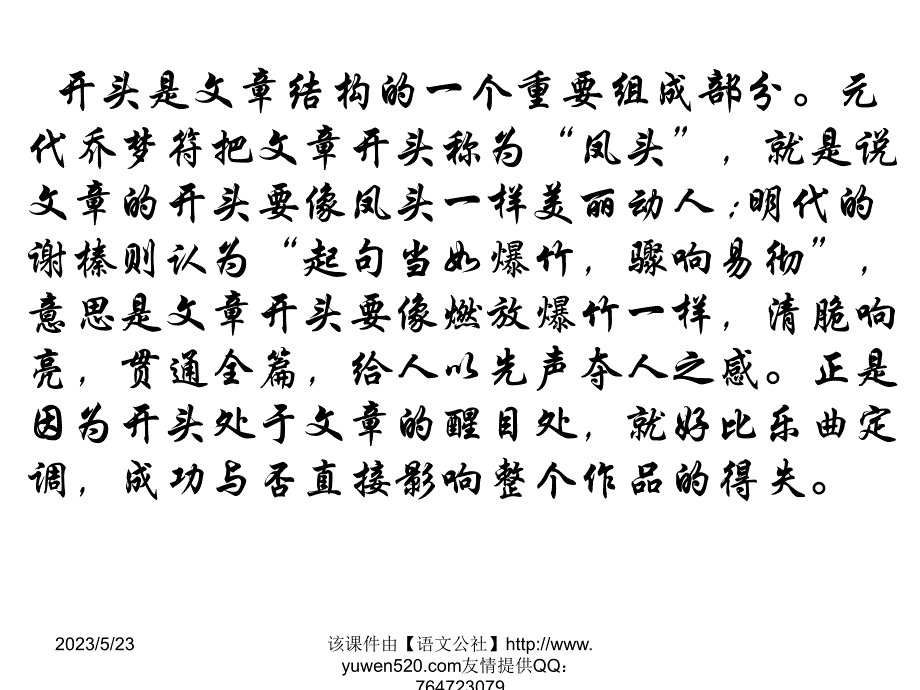 开头是文章结构的一个重要组成部分。元
代乔梦符把文章开头称为“凤头”，就是说
文章的开头要像凤头一样美丽动人;明代的
谢榛则认为“起句当如爆竹，骤响易彻”，
意思是文章开头要像燃放爆竹一样，清脆响
亮，贯通全篇，给人以先声夺人之感。正是
因为开头处于文章的醒目处，就好比乐曲定
调，成功与否直接影响整个作品的得失。
2023/5/23
该课件由【语文公社】http://www.
yuwen520.com友情提供QQ：
764723079